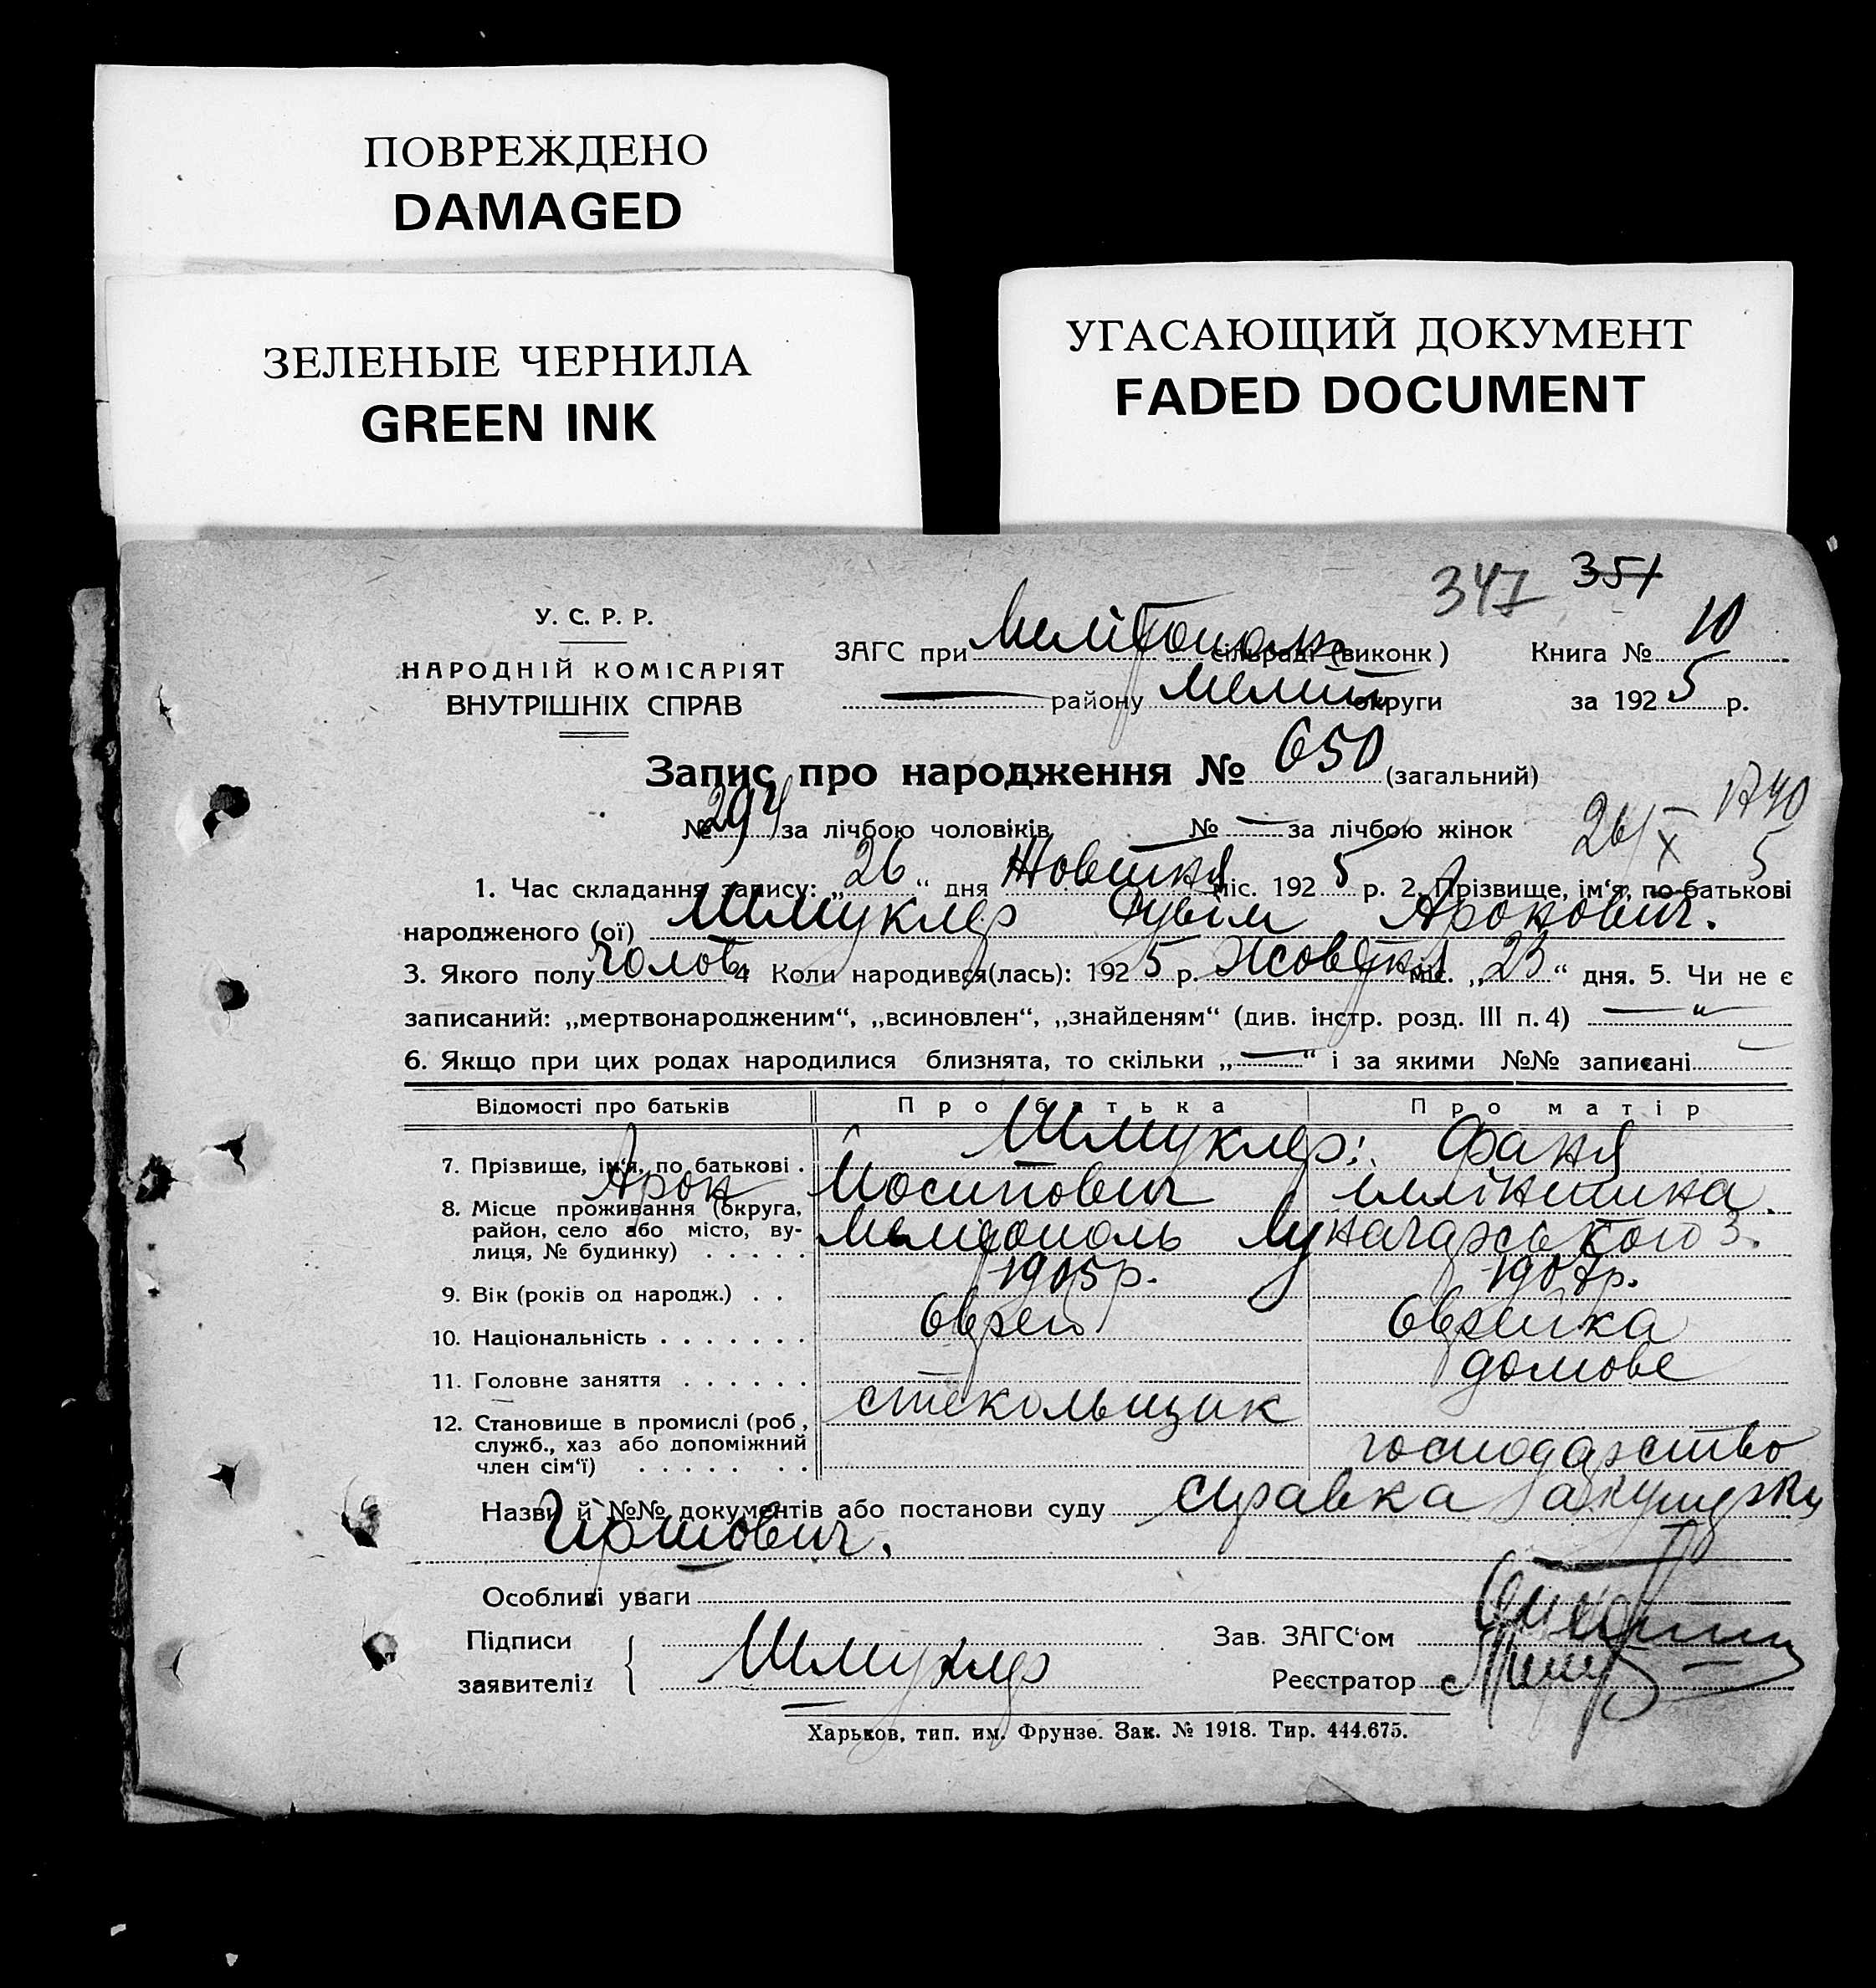 ПОВРЕЖДЕНО
DAMAGED
ЗЕЛЕНЫЕ ЧЕРНИЛА
GREEN INK
УГАСАЮЩИЙ ДОКУМЕНТ
FADED DOCUMENT
347 351
У. С. Р. Р.
НАРОДНІЙ КОМІСАРІЯТ
ВНУТРІШНІХ СПРАВ
ЗАГС при Мелітополь сільраді (виконк) Книга № 10
району Меліт округи за 1925 р.
Запис про народження № 650 (загальний)
№ 294 за лічбою чоловіків № — за лічбою жінок 26/X 5
1740
1. Час складання запису: „26“ дня Жовтня міс. 1925 р. 2. Прізвище, ім‘я, по-батькові
народженого (ої) Шмуклер Рувім Аронович.
3. Якого полу Чолов. 4 Коли народився(лась): 1925 р. Жовтня міс. „23“ дня. 5. Чи не є
записаний: „мертвонародженим“, „всиновлен“, „знайденям“ (див. інстр. розд. III п. 4) — „
6. Якщо при цих родах народилися близнята, то скільки „—“ і за якими №№ записані —
Відомості про батьків Про батька Про матір
7. Прізвище, ім‘я, по батькові . Шмуклер: Фаня
Арон Йосипович Іллінишна.
8. Місце проживання (округа, район, село або місто, вулиця, № будинку) . . . . . Мелітополь Луначарського 3.
9. Вік (років од народж.) . . 1905 р. 1907 р.
10. Національність . . . . . . . Єврей Єврейка
11. Головне заняття . . . . . . стекольщик домове
12. Становище в промислі (роб., служб., хаз або допоміжний член сім‘ї) . . . . . . . господарство
Назви й №№ документів або постанови суду справка акушерки
Гіршович.
Особливі уваги
Підписи заявителів { Шмуклер
Зав. ЗАГС‘ом
Реєстратор
Харьков, тип. им. Фрунзе. Зак. № 1918. Тир. 444.675.